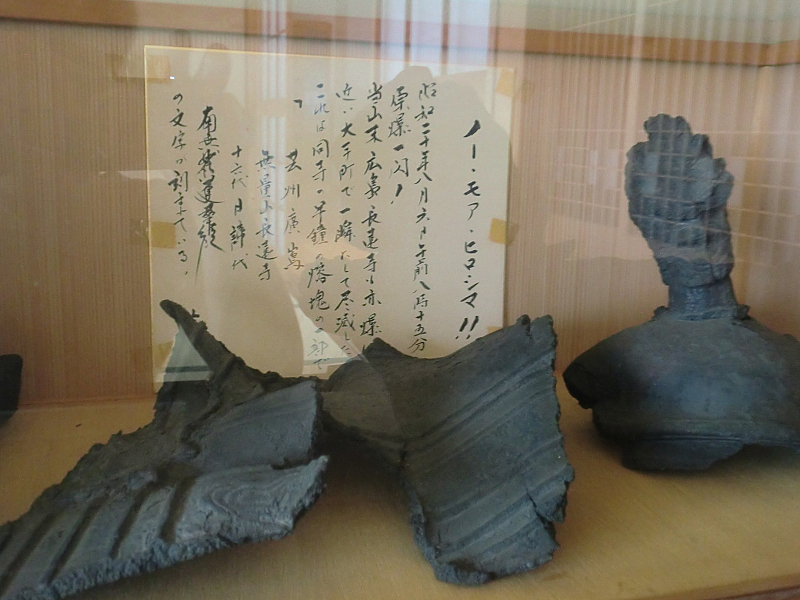 ノー・モア・ヒロシマ!!
昭和二十年八月六日午前八時十五分
原爆一閃!
当山末広島長遠寺も亦爆
近い大手町で一瞬にして尽滅した
これは同寺の半鐘の熔塊の一部で
「芸州廣島
無量山長遠寺
十六代日諦代
南無妙法蓮華経
の文字が刻まれている。